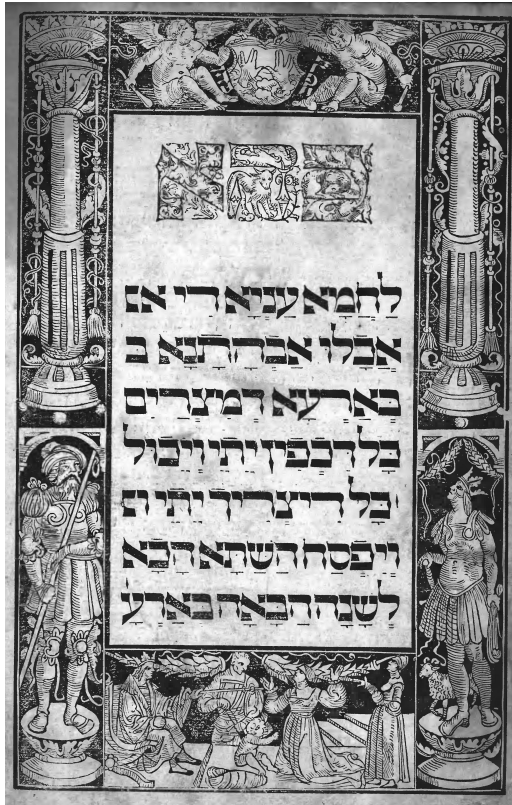 כהא
לַחְמָא עַנְיָא דִי אכ
אֲכָלוּ אַבְהָתָנָא ב
בְּאַרְעָא דְמִצְרַיִם
כָּל דִכְפִין יֵיתֵי וְיֵיכוֹל
כָּל דִיצְרִיךְ יֵיתֵי
וְיִפְסַח הָשַׁתָּא הָכָא
לְשָׁנָה הַבָּאָה בְּאַרְעָ